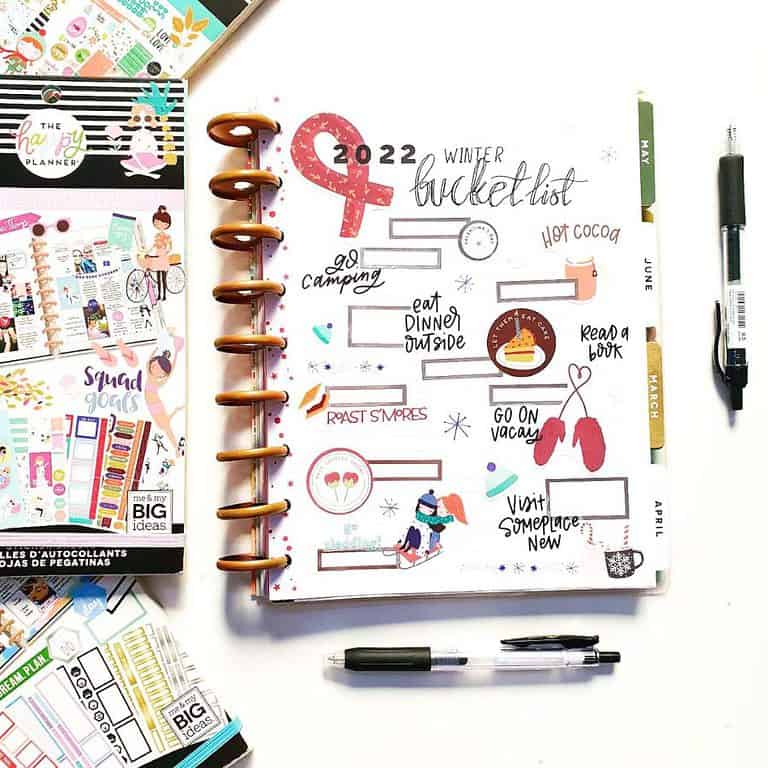 LOVE
THE
happy
PLANNER
Squad
goals
me & my
BIG
ideas
LLES D'AUTOCOLLANTS
OJAS DE PEGATINAS
DREAM. PLAN.
me & my
BIG
ideas
2022 WINTER
bucket list
HOT COCOA
go
camping
eat
DINNER
outside
LET THEM EAT CAKE
Read a
book
ROAST S'MORES
GO ON
VACAY
go
sledding!
Visit
Someplace
New
MAY
JUNE
MARCH
APRIL